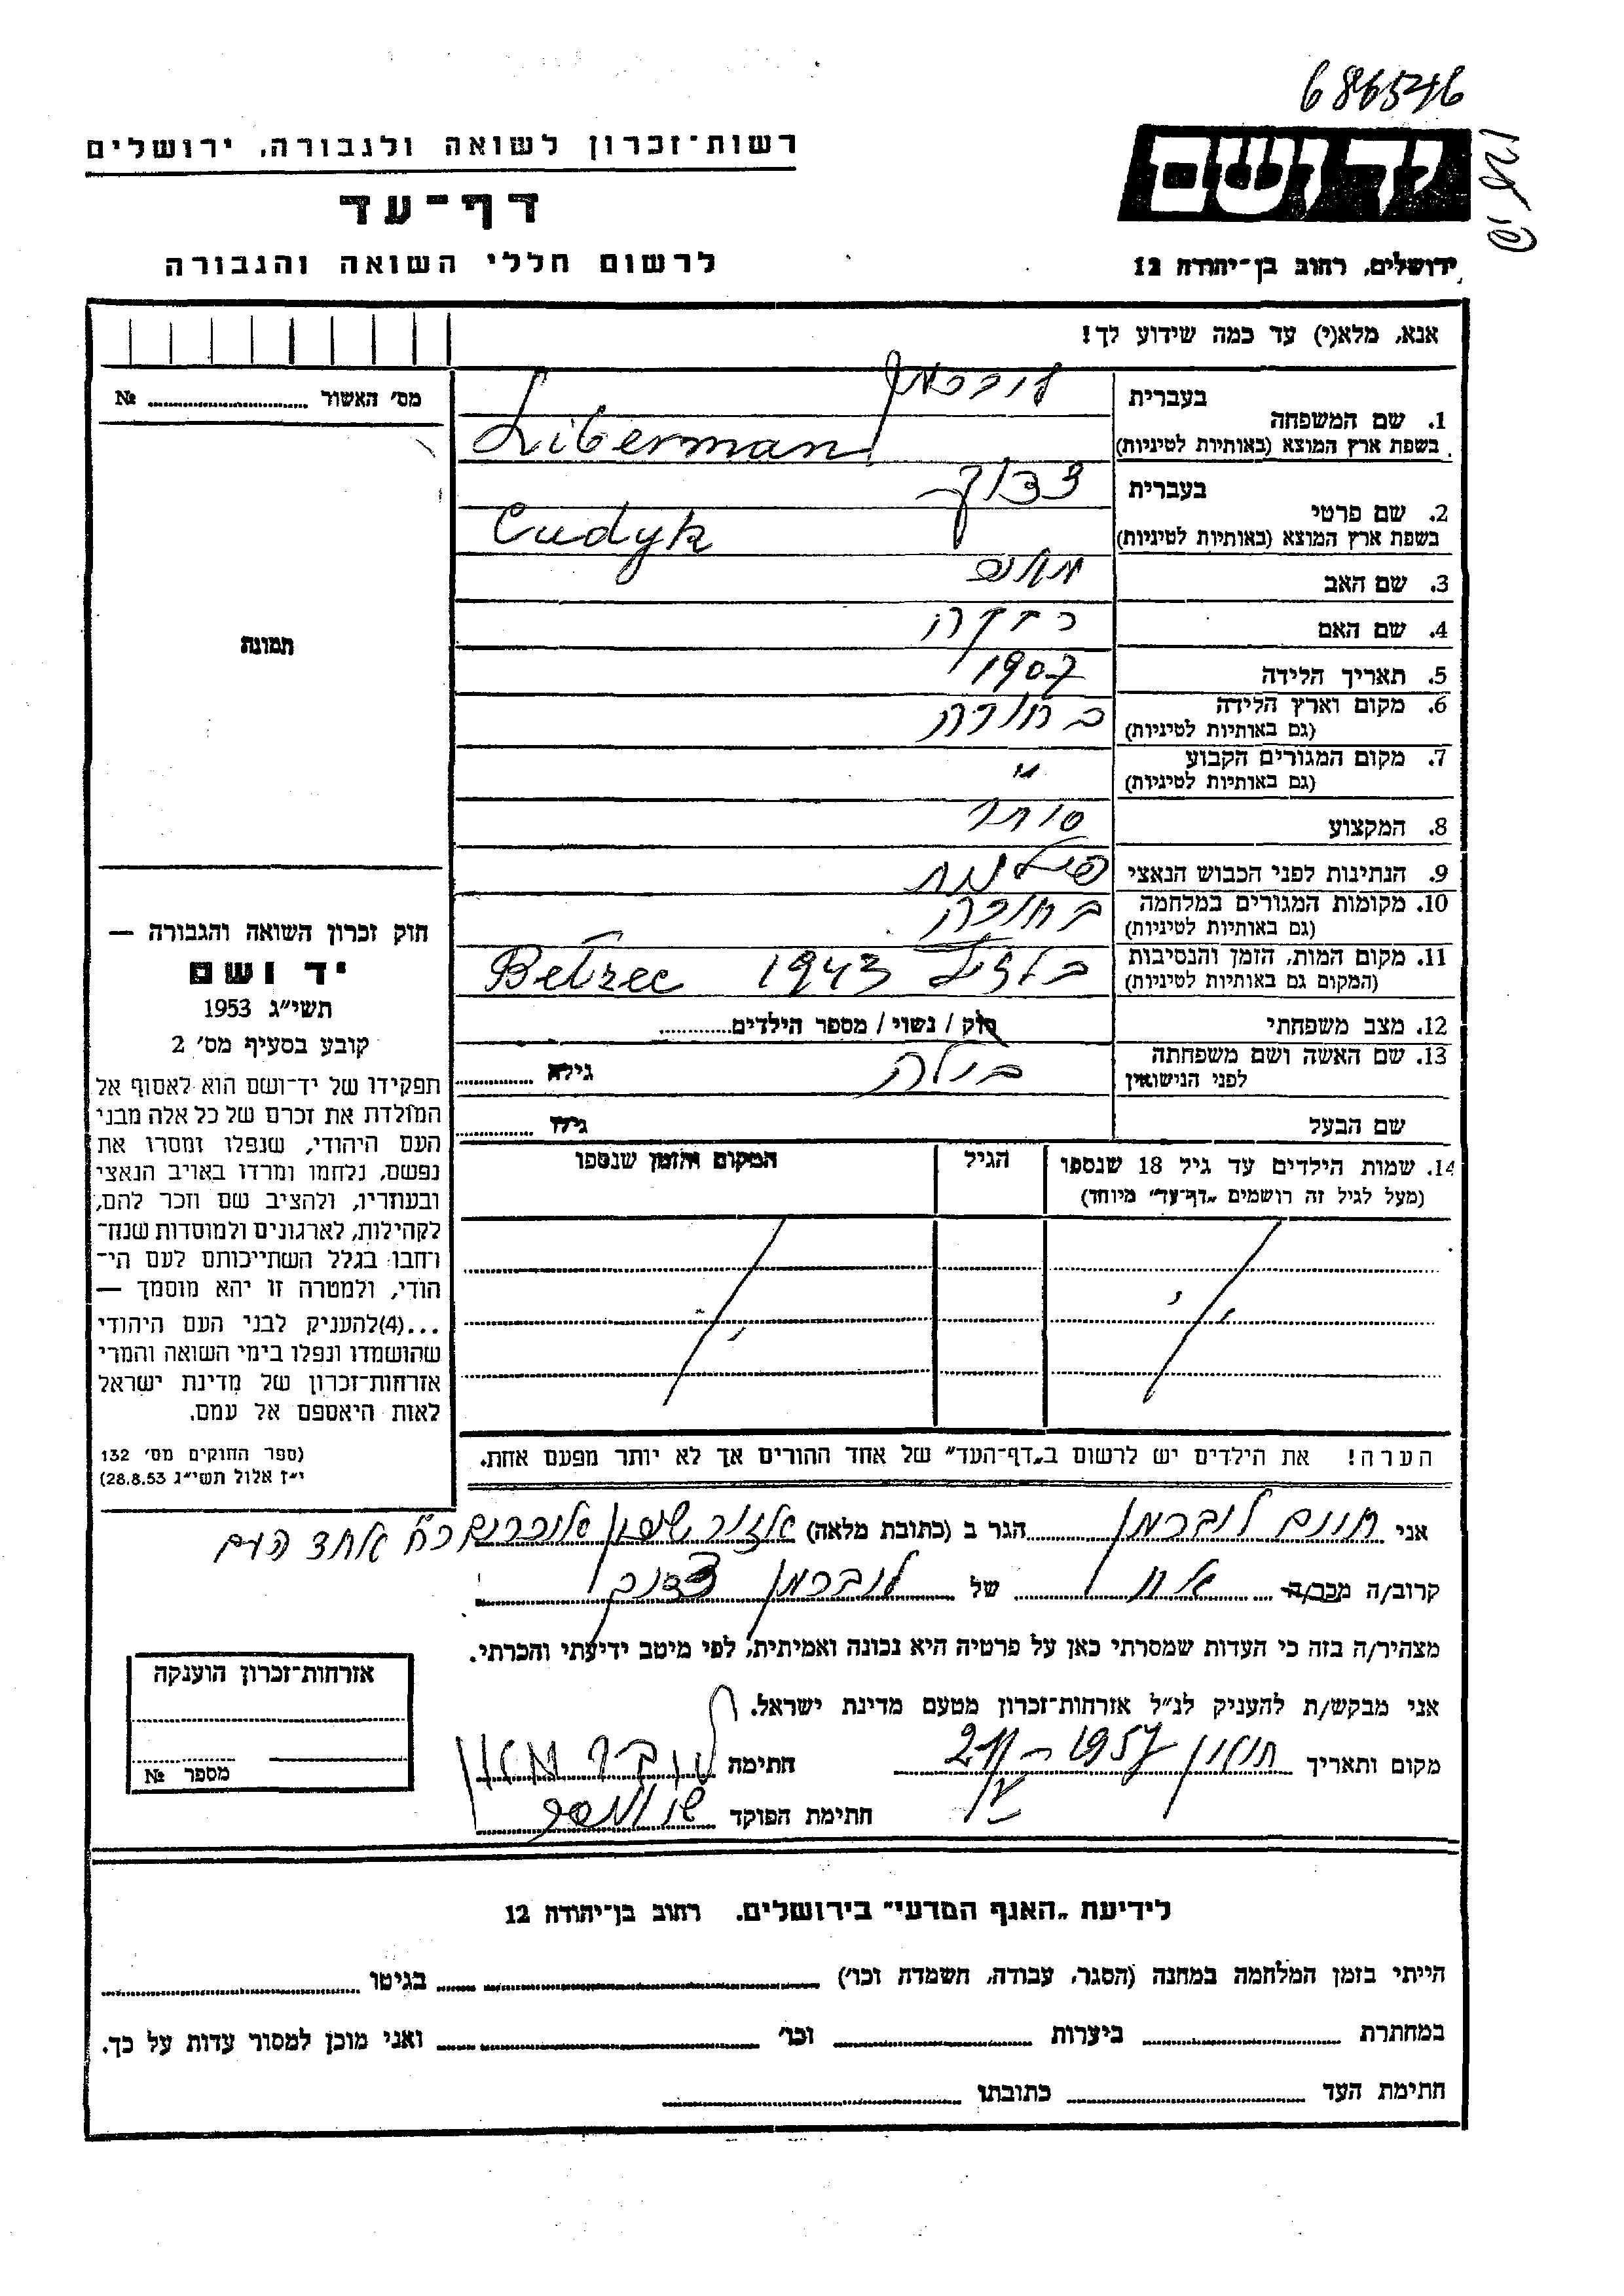 686546
יד ושם
רשות־זכרון לשואה ולגבורה, ירושלים
דף־עד
לרשום חללי השואה והגבורה
ירושלים, רחוב בן־יהודה 12
אנא, מלא(י) עד כמה שידוע לך!
מס' האשור № ....................
בעברית
1. שם המשפחה ליברמן
בשפת ארץ המוצא (באותיות לטיניות) Liberman
בעברית
2. שם פרטי צדוק
בשפת ארץ המוצא (באותיות לטיניות) Cudyk
3. שם האב
4. שם האם רבקה
5. תאריך הלידה 1907
6. מקום וארץ הלידה
(גם באותיות לטיניות)
7. מקום המגורים הקבוע "
(גם באותיות לטיניות)
8. המקצוע סוחר
9. הנתינות לפני הכבוש הנאצי
10. מקומות המגורים במלחמה
(גם באותיות לטיניות)
11. מקום המות, הזמן והנסיבות 1943 Betzec
(המקום גם באותיות לטיניות)
12. מצב משפחתי רוק / נשוי / מספר הילדים............
13. שם האשה ושם משפחתה בילה גילה ............
לפני הנישואין
שם הבעל גילו ............
תמונה
חוק זכרון השואה והגבורה —
יד ושם
תשי״ג 1953
קובע בסעיף מס' 2
תפקידו של יד־ושם הוא לאסוף אל
המולדת את זכרם של כל אלה מבני
העם היהודי, שנפלו ומסרו את
נפשם, נלחמו ומרדו באויב הנאצי
ובעוזריו, ולהציב שם וזכר להם,
לקהילות, לארגונים ולמוסדות שנח־
רחבו בגלל השתייכותם לעם הי־
הודי, ולמטרה זו יהא מוסמך —
...(4)להעניק לבני העם היהודי
שהושמדו ונפלו בימי השואה והמרי
אזרחות־זכרון של מדינת ישראל
לאות היאספם אל עמם.
(ספר החוקים מס' 132
י״ז אלול תשי״ג 28.8.53)
14. שמות הילדים עד גיל 18 שנספו הגיל המקום והזמן שנספו
(מעל לגיל זה רושמים „דף־עד" מיוחד)
הערה! את הילדים יש לרשום ב„דף־העד" של אחד ההורים אך לא יותר מפעם אחת.
אני חיים ליברמן הגר ב (כתובת מלאה) אחד העם
קרוב/ה מכר/ה אח של ליברמן צדוק
מצהיר/ה בזה כי העדות שמסרתי כאן על פרטיה היא נכונה ואמיתית, לפי מיטב ידיעתי והכרתי.
אני מבקש/ת להעניק לנ״ל אזרחות־זכרון מטעם מדינת ישראל.
מקום ותאריך חולון חתימה
חתימת הפוקד
אזרחות־זכרון הוענקה
מספר №
לידיעת „האגף המדעי" בירושלים. רחוב בן־יהודה 12
הייתי בזמן המלחמה במחנה (הסגר, עבודה, השמדה וכו') .................... בגיטו ....................
במחתרת .................... ביערות .................... וכו' .................... ואני מוכן למסור עדות על כך.
חתימת העד .................... כתובתו ....................